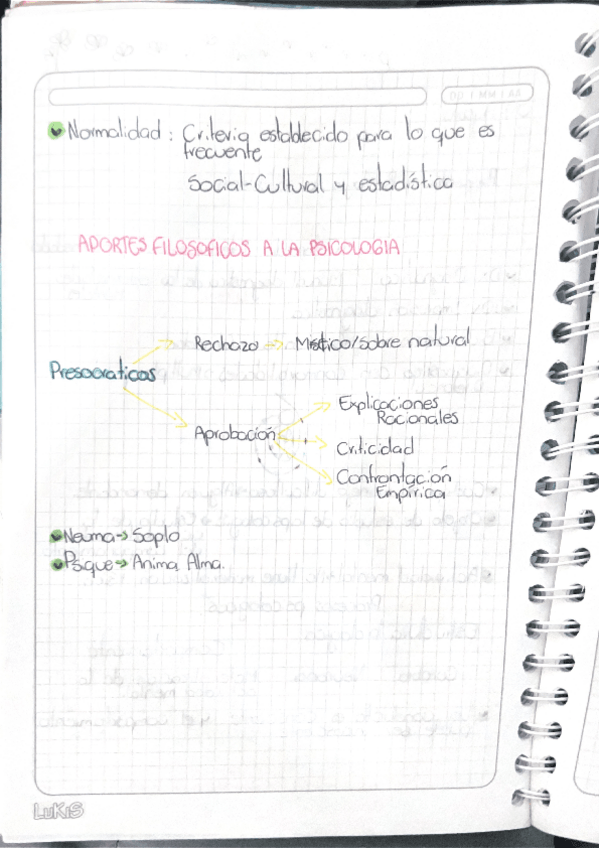 DD / MM / AA
Normalidad : Criterio establecido para lo que es
frecuente
Social-Cultural y estadística
APORTES FILOSOFICOS A LA PSICOLOGIA
Rechazo → Místico/sobre natural
Presocraticos
Explicaciones
Racionales
Aprobación
Criticidad
Confrontación
Empírica
Neuma → Soplo
Psique → Anima Alma.
LUKIS